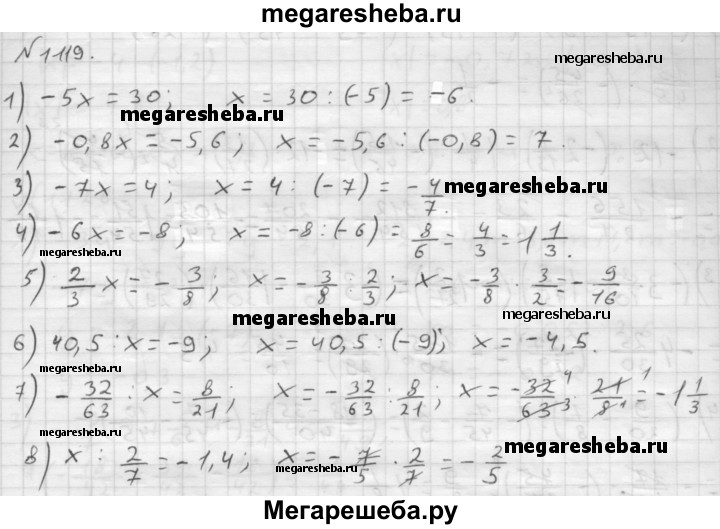 megaresheba.ru
№1119.
megaresheba.ru
1) -5x = 30; x = 30 : (-5) = -6.
megaresheba.ru
2) -0,8x = -5,6; x = -5,6 : (-0,8) = 7.
3) -7x = 4; x = 4 : (-7) = -4/7. megaresheba.ru
4) -6x = -8; x = -8 : (-6) = 8/6 = 4/3 = 1 1/3.
megaresheba.ru
5) 2/3 x = -3/8; x = -3/8 : 2/3; x = -3/8 · 3/2 = -9/16
megaresheba.ru
megaresheba.ru
6) 40,5 : x = -9; x = 40,5 : (-9); x = -4,5.
7) -32/63 : x = 8/21; x = -32/63 : 8/21; x = -32 4/63 3 · 21 1/8 1 = -1 1/3
megaresheba.ru
8) x : 2/7 = -1,4; x = -7/5 · 2/7 = -2/5 megaresheba.ru
megaresheba.ru
Мегарешеба.ру